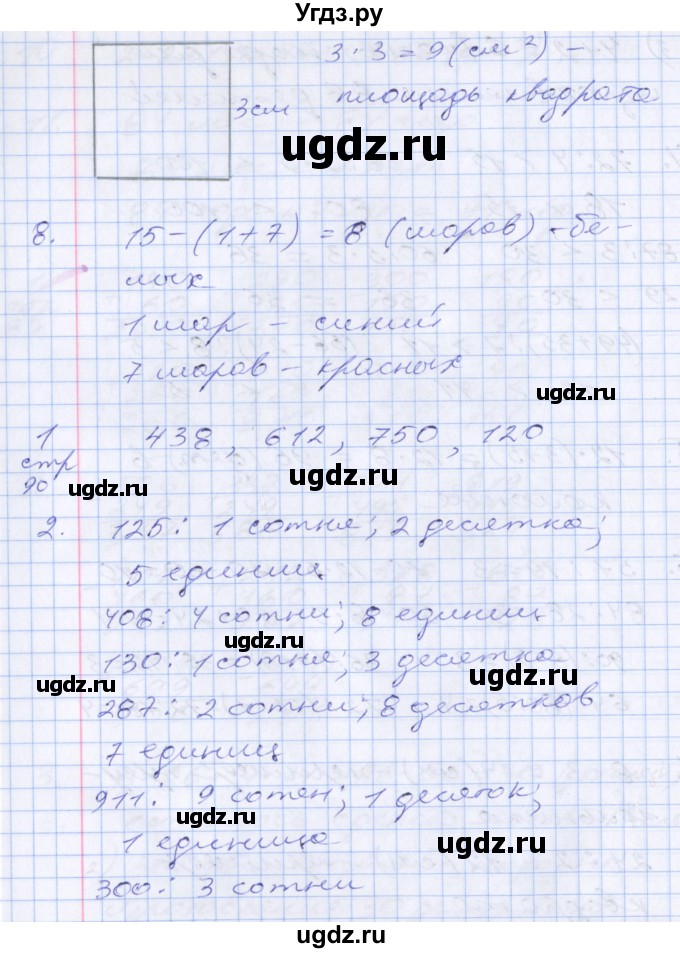 Угдз.ру
3 · 3 = 9 (см²) –
3см площадь квадрата
ugdz.ru
8. 15 – (1 + 7) = 8 (шаров) - бе-
лых
1 шар – синий
7 шаров – красных
ugdz.ru
1 438, 612, 750, 120
стр
90
ugdz.ru
ugdz.ru
2. 125: 1 сотня; 2 десятка;
5 единиц
408: 4 сотни; 8 единиц
ugdz.ru
130: 1 сотня; 3 десятка
ugdz.ru
ugdz.ru
287: 2 сотни; 8 десятков
7 единиц
911: 9 сотен; 1 десяток;
ugdz.ru
1 единица
ugdz.ru
300: 3 сотни
ugdz.ru